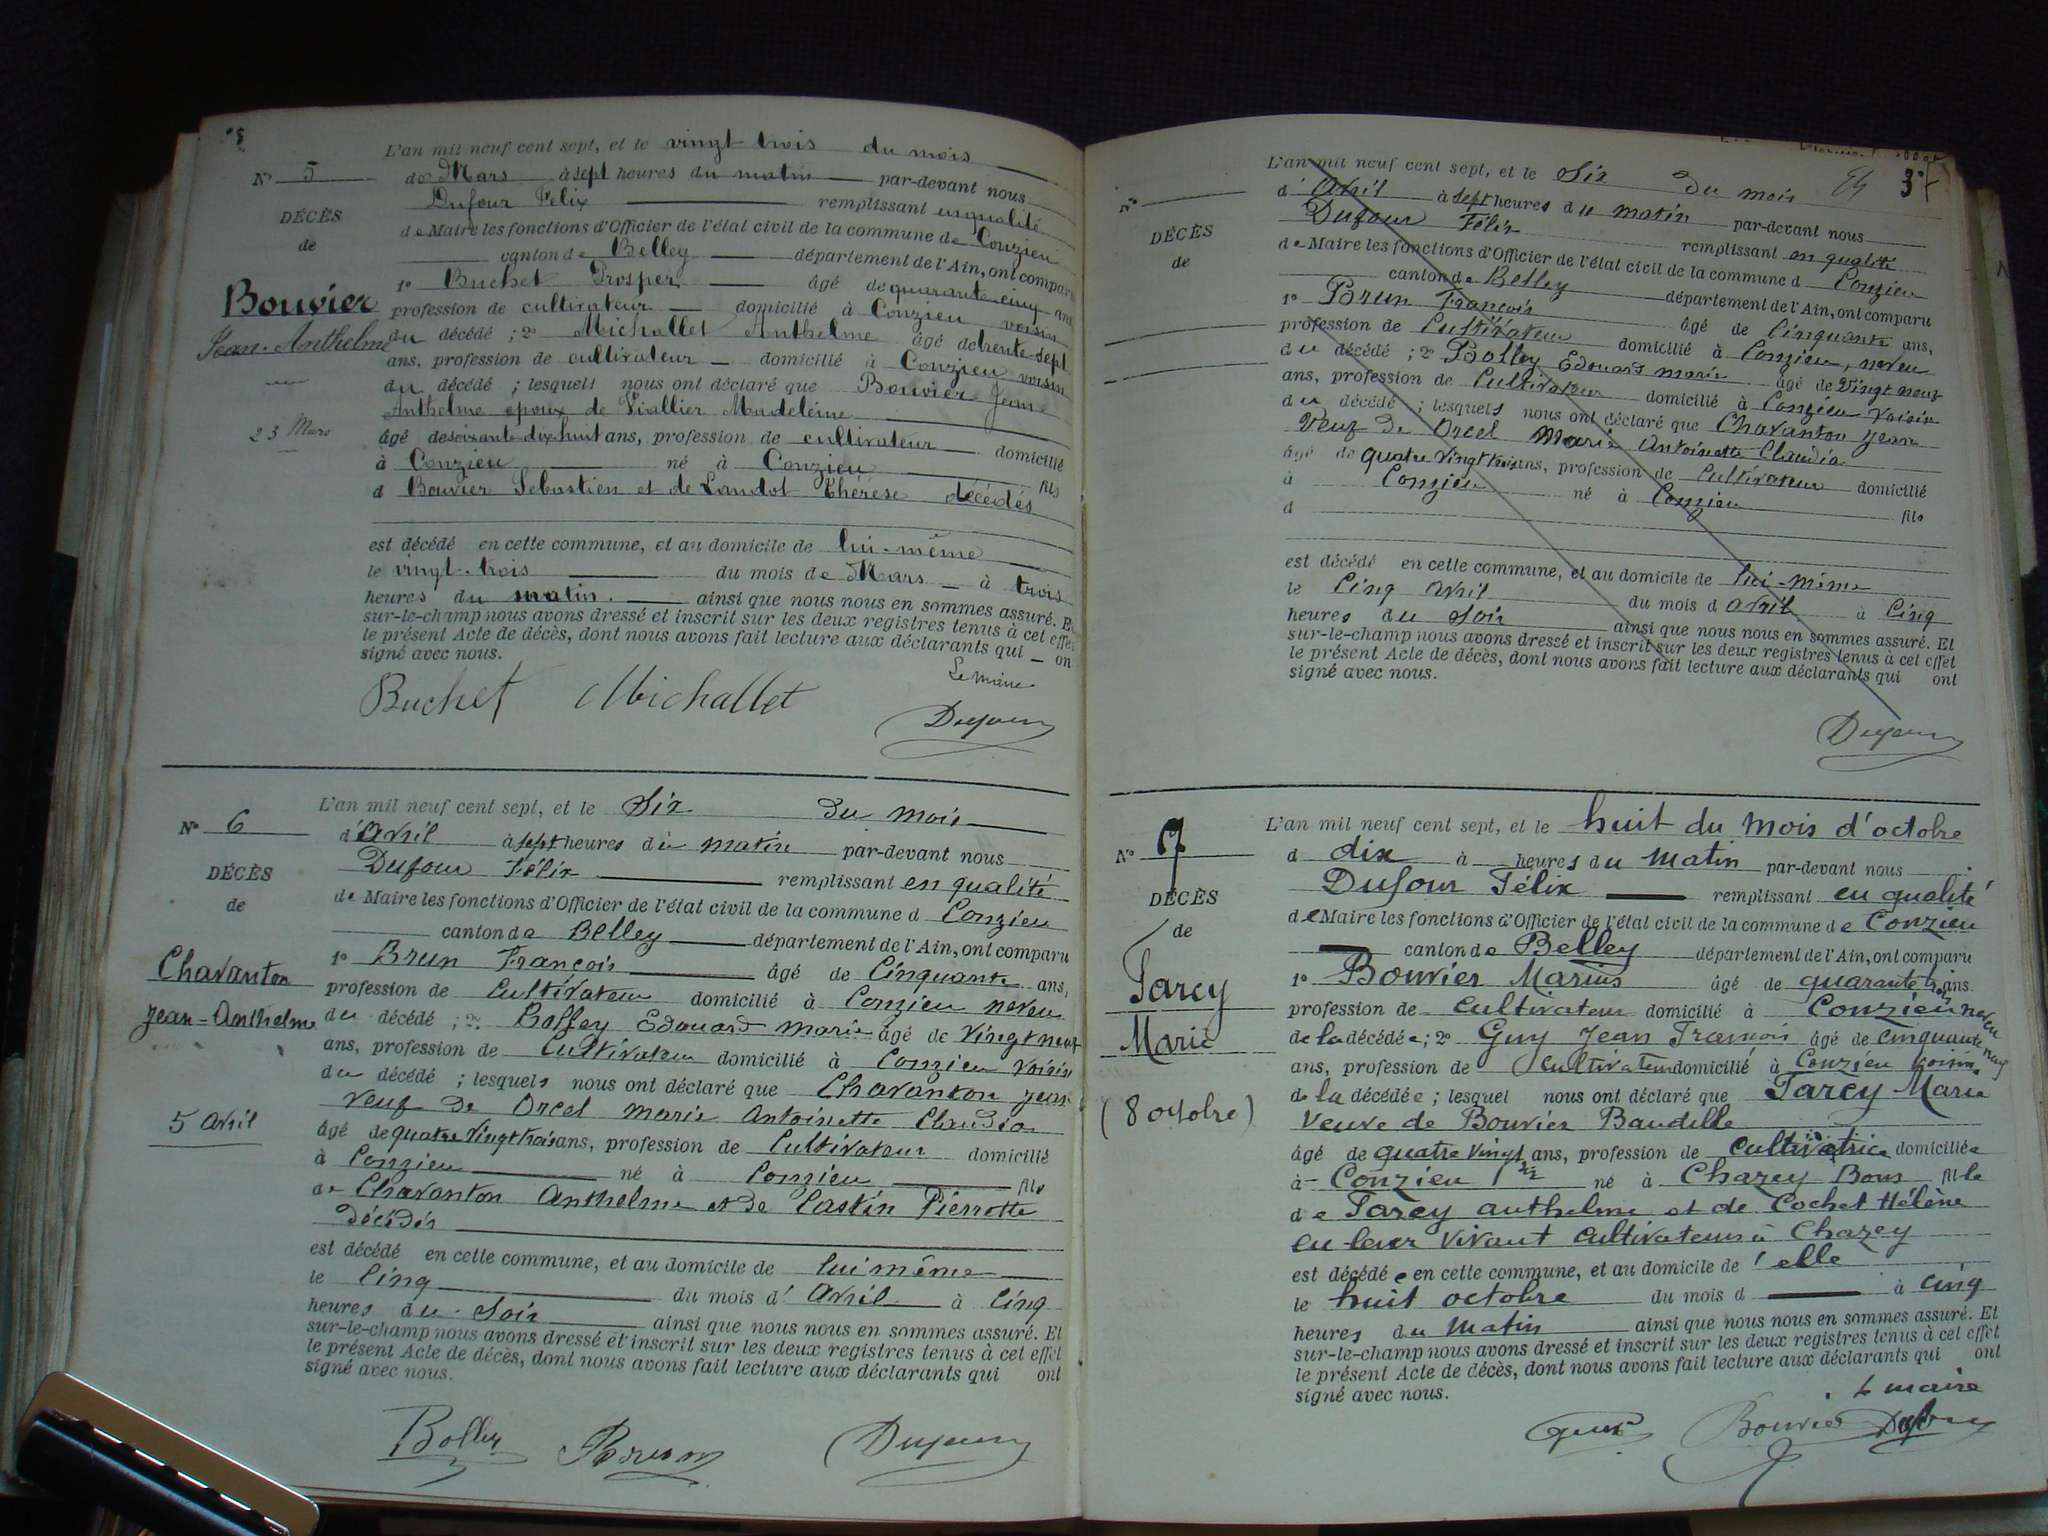 L'an mil neuf cent sept, et le vingt-trois du mois
N° 5
de Mars à sept heures du matin par-devant nous
Dufour Félix remplissant en qualité
DÉCÈS
de Maire les fonctions d'Officier de l'état civil de la commune de Conzieu
de
canton de Belley département de l'Ain, ont comparu
1° Buchet Prosper âgé de quarante-cinq ans
Bouvier
profession de cultivateur domicilié à Conzieu voisin
Jean-Anthelme
du décédé ; 2° Michallet Anthelme âgé de trente-sept
ans, profession de cultivateur domicilié à Conzieu voisin
du décédé ; lesquels nous ont déclaré que Bouvier Jean
Anthelme epoux de Viallier Madeleine
23 Mars
âgé de soixante-dix-huit ans, profession de cultivateur domicilié
à Conzieu né à Conzieu fils
d Bouvier Sébastien et de Landot Thérèse décédés
est décédé en cette commune, et au domicile de lui-même
le vingt-trois du mois de Mars à trois
heures du matin. ainsi que nous nous en sommes assuré. Et
sur-le-champ nous avons dressé et inscrit sur les deux registres tenus à cet effet
le présent Acte de décès, dont nous avons fait lecture aux déclarants qui ont
signé avec nous.
Le maire
Buchet Michallet Dufour
L'an mil neuf cent sept, et le Six du mois
N° 6
d'Avril à sept heures du matin par-devant nous
Dufour Félix remplissant en qualité
DÉCÈS
de Maire les fonctions d'Officier de l'état civil de la commune d Conzieu
de
canton de Belley département de l'Ain, ont comparu
1° Brun François âgé de Cinquante ans,
Chavanton
profession de Cultivateur domicilié à Conzieu neveu
Jean-Anthelme
du décédé ; 2° Bolley Edouard marie âgé de Vingt neuf
ans, profession de Cultivateur domicilié à Conzieu Voisin
du décédé ; lesquels nous ont déclaré que Chavanton Jean
Veuf de Orcel Marie Antoinette Claudia
5 Avril
âgé de quatre Vingt trois ans, profession de Cultivateur domicilié
à Conzieu né à Conzieu fils
de Chavanton Anthelme et de Castin Pierrotte
Décédés
est décédé en cette commune, et au domicile de lui même
le Cinq du mois d' Avril à Cinq
heures du Soir ainsi que nous nous en sommes assuré. Et
sur-le-champ nous avons dressé et inscrit sur les deux registres tenus à cet effet
le présent Acte de décès, dont nous avons fait lecture aux déclarants qui ont
signé avec nous.
Bolley Brun Dufour
L'an mil neuf cent sept, et le Six du mois
3
N°
d' Avril à sept heures du matin par-devant nous
Dufour Félix remplissant en qualité
DÉCÈS
de Maire les fonctions d'Officier de l'état civil de la commune d Conzieu
de
canton de Belley département de l'Ain, ont comparu
1° Brun François âgé de Cinquante ans,
profession de Cultivateur domicilié à Conzieu, neveu
du décédé ; 2° Bolley Edouard marie âgé de Vingt neuf
ans, profession de Cultivateur domicilié à Conzieu Voisin
du décédé ; lesquels nous ont déclaré que Chavanton Jean
Veuf de Orcel Marie Antoinette Claudia
âgé de quatre Vingt trois ans, profession de Cultivateur domicilié
à Conzieu né à Conzieu
d fils
est décédé en cette commune, et au domicile de lui-même
le Cinq Avril du mois d Avril à Cinq
heures du Soir ainsi que nous nous en sommes assuré. Et
sur-le-champ nous avons dressé et inscrit sur les deux registres tenus à cet effet
le présent Acte de décès, dont nous avons fait lecture aux déclarants qui ont
signé avec nous.
Dufour
L'an mil neuf cent sept, et le huit du mois d'octobre
N° 7
d dix à heures du matin par-devant nous
Dufour Félix remplissant en qualité
DÉCÈS
de Maire les fonctions d'Officier de l'état civil de la commune de Conzieu
de
canton de Belley département de l'Ain, ont comparu
1° Bouvier Marius âgé de quarante trois ans.
Parcy
profession de Cultivateur domicilié à Conzieu neveu
Marie
de la décédée ; 2° Guy Jean François âgé de cinquante neuf
ans, profession de Cultivateur domicilié à Conzieu voisin
de la décédée ; lesquel nous ont déclaré que Parcy Marie
(8 octobre)
Veuve de Bouvier Baudille
âgé de quatre vingt six ans, profession de cultivatrice domiciliée
à Conzieu né à Chazey Bons fille
de Parcy anthelme et de Cochet Hélène
en leur vivant cultivateurs à Chazey
est décédée en cette commune, et au domicile d'elle
le huit octobre du mois d à cinq
heures du matin ainsi que nous nous en sommes assuré. Et
sur-le-champ nous avons dressé et inscrit sur les deux registres tenus à cet effet
le présent Acte de décès, dont nous avons fait lecture aux déclarants qui ont
signé avec nous.
Le maire
Guy Bouvier Dufour